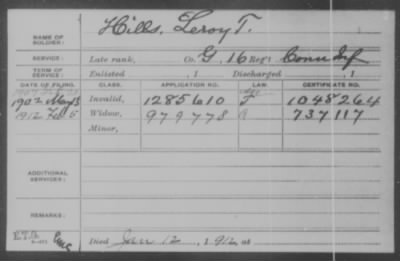 Hills, Leroy T.
NAME OF SOLDIER:
SERVICE: Late rank, Co. G, 16 Reg't Conn Inf
TERM OF SERVICE: Enlisted , 1 Discharged , 1
DATE OF FILING. CLASS. APPLICATION NO. LAW. CERTIFICATE NO.
1902 May 3 Invalid, 1285610 1048264
1912 Feb 5 Widow, 979778 737117
Minor,
ADDITIONAL SERVICES:
REMARKS:
Died Jan 12, 1912, at